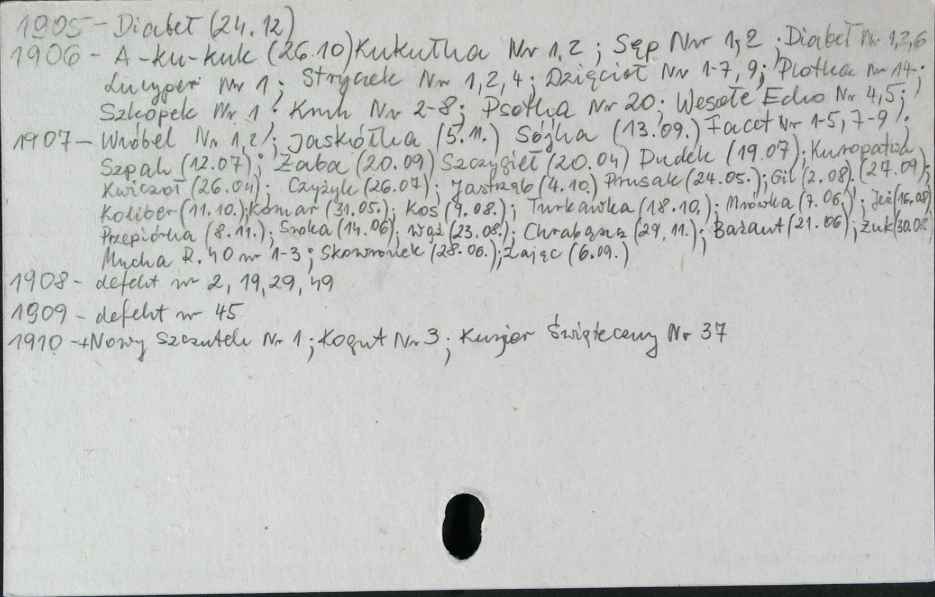 1905 - Diabeł (24.12)
1906 - A-ku-kuk (26.10) Kukułka Nr 1,2 ; Sęp Nr 1,2 ; Diabeł Nr 1,2,6
Lucyper Nr 1 ; Stryczek Nr 1,2,4 ; Dzięcioł Nr 1-7,9 ; Plotka Nr 14 ;
Szkopek Nr 1 ; Kruk Nr 2-8 ; Psotka Nr 20 ; Wesołe Echo Nr 4,5 ;
1907 - Wróbel Nr 1,2 ; Jaskółka (5.11.) Sójka (13.09.) Facet Nr 1-5, 7-9 ;
Szpak (12.07) ; Żaba (20.09) Szczygieł (20.04) Dudek (19.07) ; Kuropatwa
Kwiczoł (26.04) ; Czyżyk (26.07) ; Jastrząb (4.10.) Prusak (24.05.) ; Gil (2.08) ; (27.09) ;
Koliber (11.10.) ; Komar (31.05.) ; Kos (9.08.) ; Turkawka (18.10.) ; Mrówka (7.06.) ; Jeż (16.08)
Przepiórka (8.11.) ; Sroka (14.06) ; Wąż (23.08.) ; Chrabąszcz (29.11.) ; Bażant (21.06) ; Żuk (30.08)
Mucha R. 40 nr 1-3 ; Skowronek (28.06.) ; Zając (6.09.)
1908 - defekt nr 2, 19, 29, 49
1909 - defekt nr 45
1910 - + Nowy Szczutek Nr 1 ; Kogut Nr 3 ; Kurjer Świąteczny Nr 37